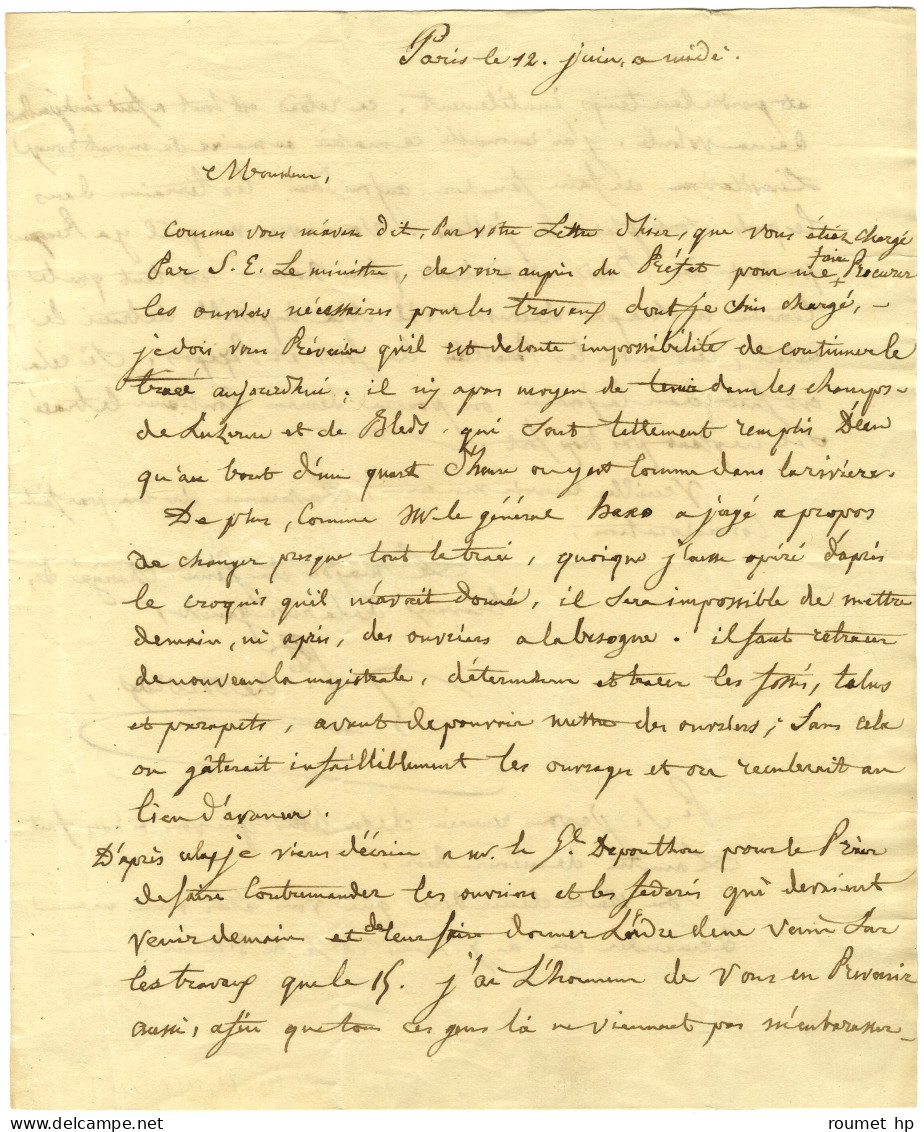 Paris le 12. juin, a midi.
Monsieur,
Comme vous m'avez dit, Par votre Lettre d'hier, que vous étiez chargé
Par S. E. Le ministre, de voir auprès du Préfet pour me faire Procurer
les ouvriers nécessaires pour les travaux dont je suis chargé, -
je dois vous Prévenir qu'il est de toute impossibilité de continuer le
tracé aujourd'hui; il n'y a pas moyen de tenir dans les champs
de Luzerne et de Bleds, qui sont tellement remplis D'eau
qu'au bout d'un quart d'heure on y est comme dans la rivière.
De plus, Comme Mr. le général haxo a jugé a propos
de changer presque tout le tracé, quoique j'aie opéré d'après
le croquis qu'il m'avait donné, il sera impossible de mettre
demain, ni après, des ouvriers a la besogne. il faut retracer
de nouveau la magistrale, déterminer et tracer les fossés, talus
et parapets, avant de pouvoir mettre des ouvriers; Sans cela
on gâterait infailliblement les ouvrages et on reculerait au
lieu d'avancer.
D'après cela, je viens d'écrire a mr. le Gl. Deponthon pour le Prier
de faire Contremander les ouvriers et les federés qui devaient
venir demain et de leur faire donner L'ordre de ne venir Sur
les travaux que le 15. j'ai L'honneur de Vous en Prévenir
aussi, afin que tous ces gens là ne viennent pas m'embarasser
roumet hp